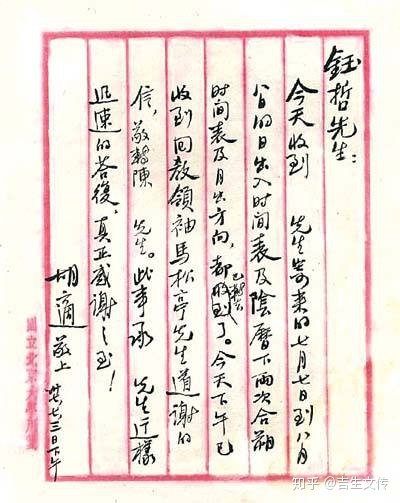 鈺哲先生：
今天收到 先生寄来的七月七日到八月
八日的日出入时间表及陰曆下兩次合朔
时间表及月出方向，都收到了。今天下午已
收到回教領袖馬松亭先生道謝的
信，敬轉陳 先生。此事承 先生这樣
迅速的答復，真正感謝之至！
胡適敬上 卅七三日下午
國立北京大學用箋
知乎 @吉生文传